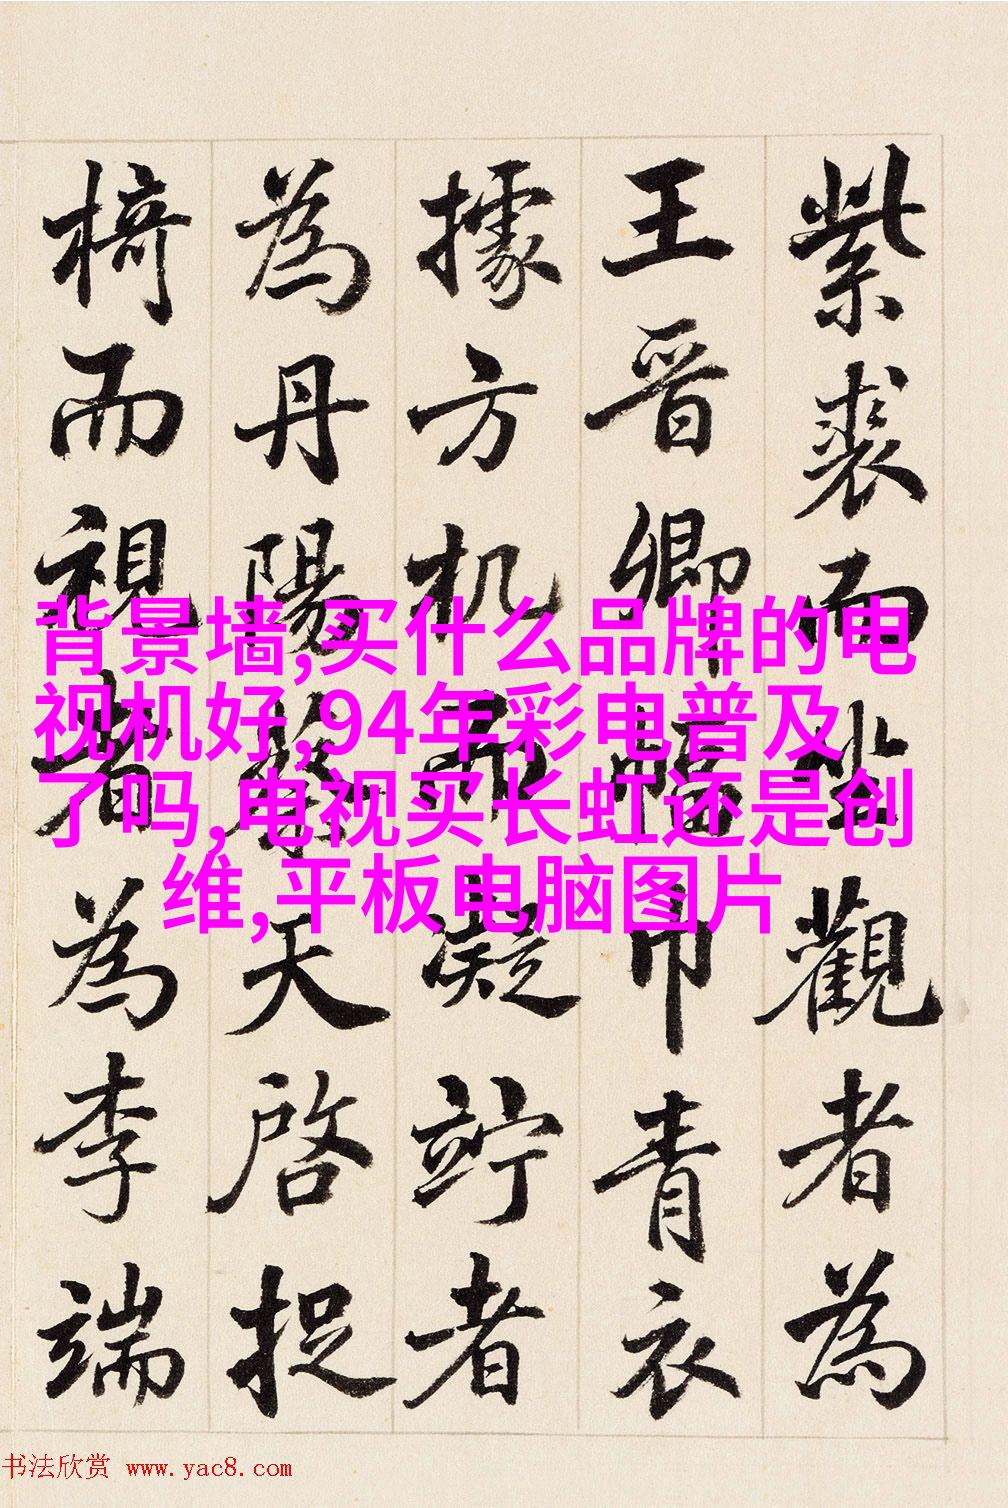 紫裘而坐觀者為
王晋卿幅巾青衣
據方机而凝竚者
為丹陽蔡天啓捉
椅而視者為李端
背景墙,买什么品牌的电
视机好,94年彩电普及
了吗,电视买长虹还是创
维,平板电脑图片
书法欣赏 www.yac8.com